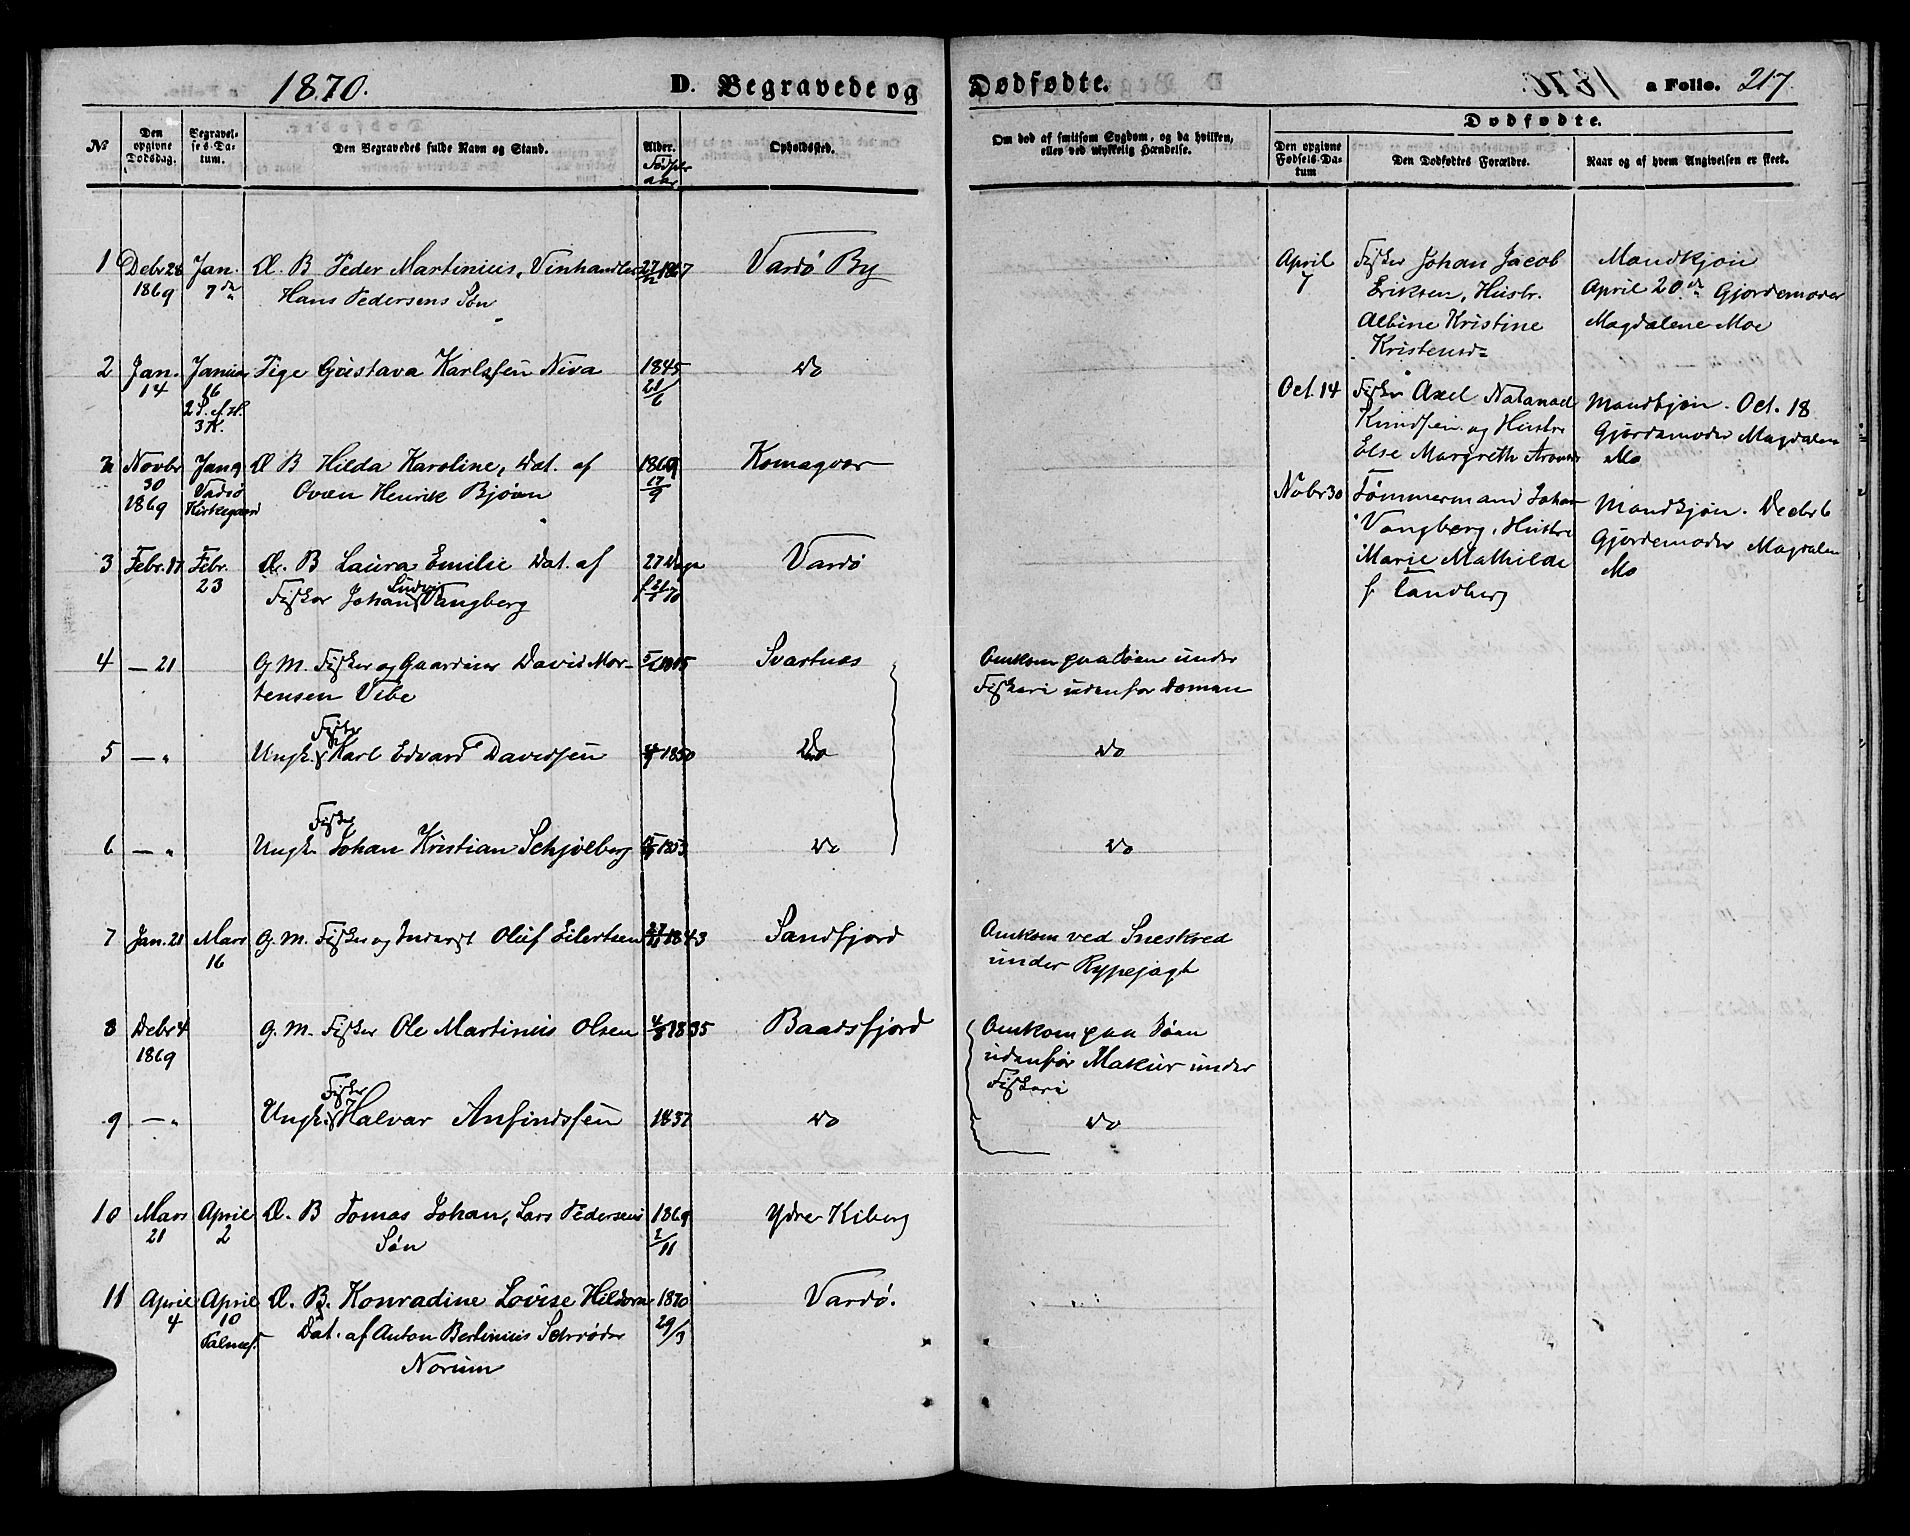 1870.
D. Begravede og
Dødfødte.
a Folio. 217.
Dødfødte.
№
Den opgivne Dødsdag.
Begravelses-Datum.
Den Begravedes fulde Navn og Stand.
Alder.
Fødselsaar
Opholdssted.
Om død af smitsom Sygdom, og da hvilken, eller ved ulykkelig Hændelse.
Den opgivne Fødsels-Datum
Den Dødfødtes Forældre.
Naar og af hvem Angivelsen er skeet.
1 Debr 28 Jan. Æ. B Peder Martinius, Vinhandler 27/12 1867 Vardö By
1869 7de Hans Pedersens Sön
2 Jan. Januar Pige Gustava Karlsfen Niva 1845 do
14 16 21/6
2 S. ef H.
3 K.
Novbr Jan 9 Æ B Hilda Karoline, Dat. af 1869 Komagvær
30 Vadsö Ovæn Henrik Bjöan 17/9
1869 Kirkegaard
3 Febr. 17 Febr. Æ. B Laura Emilie Dat. af 27 Dage Vardö
23 Fisker Johan Ludvig Vangberg
4 — 21 G. M. Fisker og Gaardmr David Mor- 1815 Svartnæs Omkom paa Söen under
tensen Vibe Fiskeri udenfor Domen
5 — " Ungk. Fisker Karl Edvard Davidsen 1850 do do
6 — " Ungk. Fisker Johan Kristian Schjølberg 1853 do do
7 Jan. 21 Mars G. M. Fisker og Inderst Oluf Eilertsen 1843 Sandfjord Omkom ved Sneskred
16 under Rypejagt
8 Debr 4 G. M. Fisker Ole Martinus Olsen 4/3 1835 Baadsfjord Omkom paa Söen
1869 udenfor Makur under
Fiskeri
9 — " Ungk. Fisker Halvar Anfindsfen 1837 do do
10 Mars April Æ. B Tomas Johan, Lars Pedersens 1869 Ydre Kiberg
21 2 Sön 2/11
11 April April Æ. B. Konradine Lovise Hildora 1870 Vardö.
4 10 Dat. af Anton Bertinius Schröder 29/3
Palmes. Norum
April Fisker Johan Jacob Mandkjön
7 Eriksen, Hustr. April 20de Gjordemoder
Albine Kristine Magdalene Moe
Kristensd=
Oct. 14 Fisker Axel Natanael Mandkjön. Oct. 18
Knudsen og Hustru Gjordemoder Magdalen
Else Margreth Mo
Nobr 30 Tömmermand Johan Mandkjön. Decbr 6
Vangberg, Hustru Gjordemoder Magdalen
Marie Mathilde Mo
f. Landberg